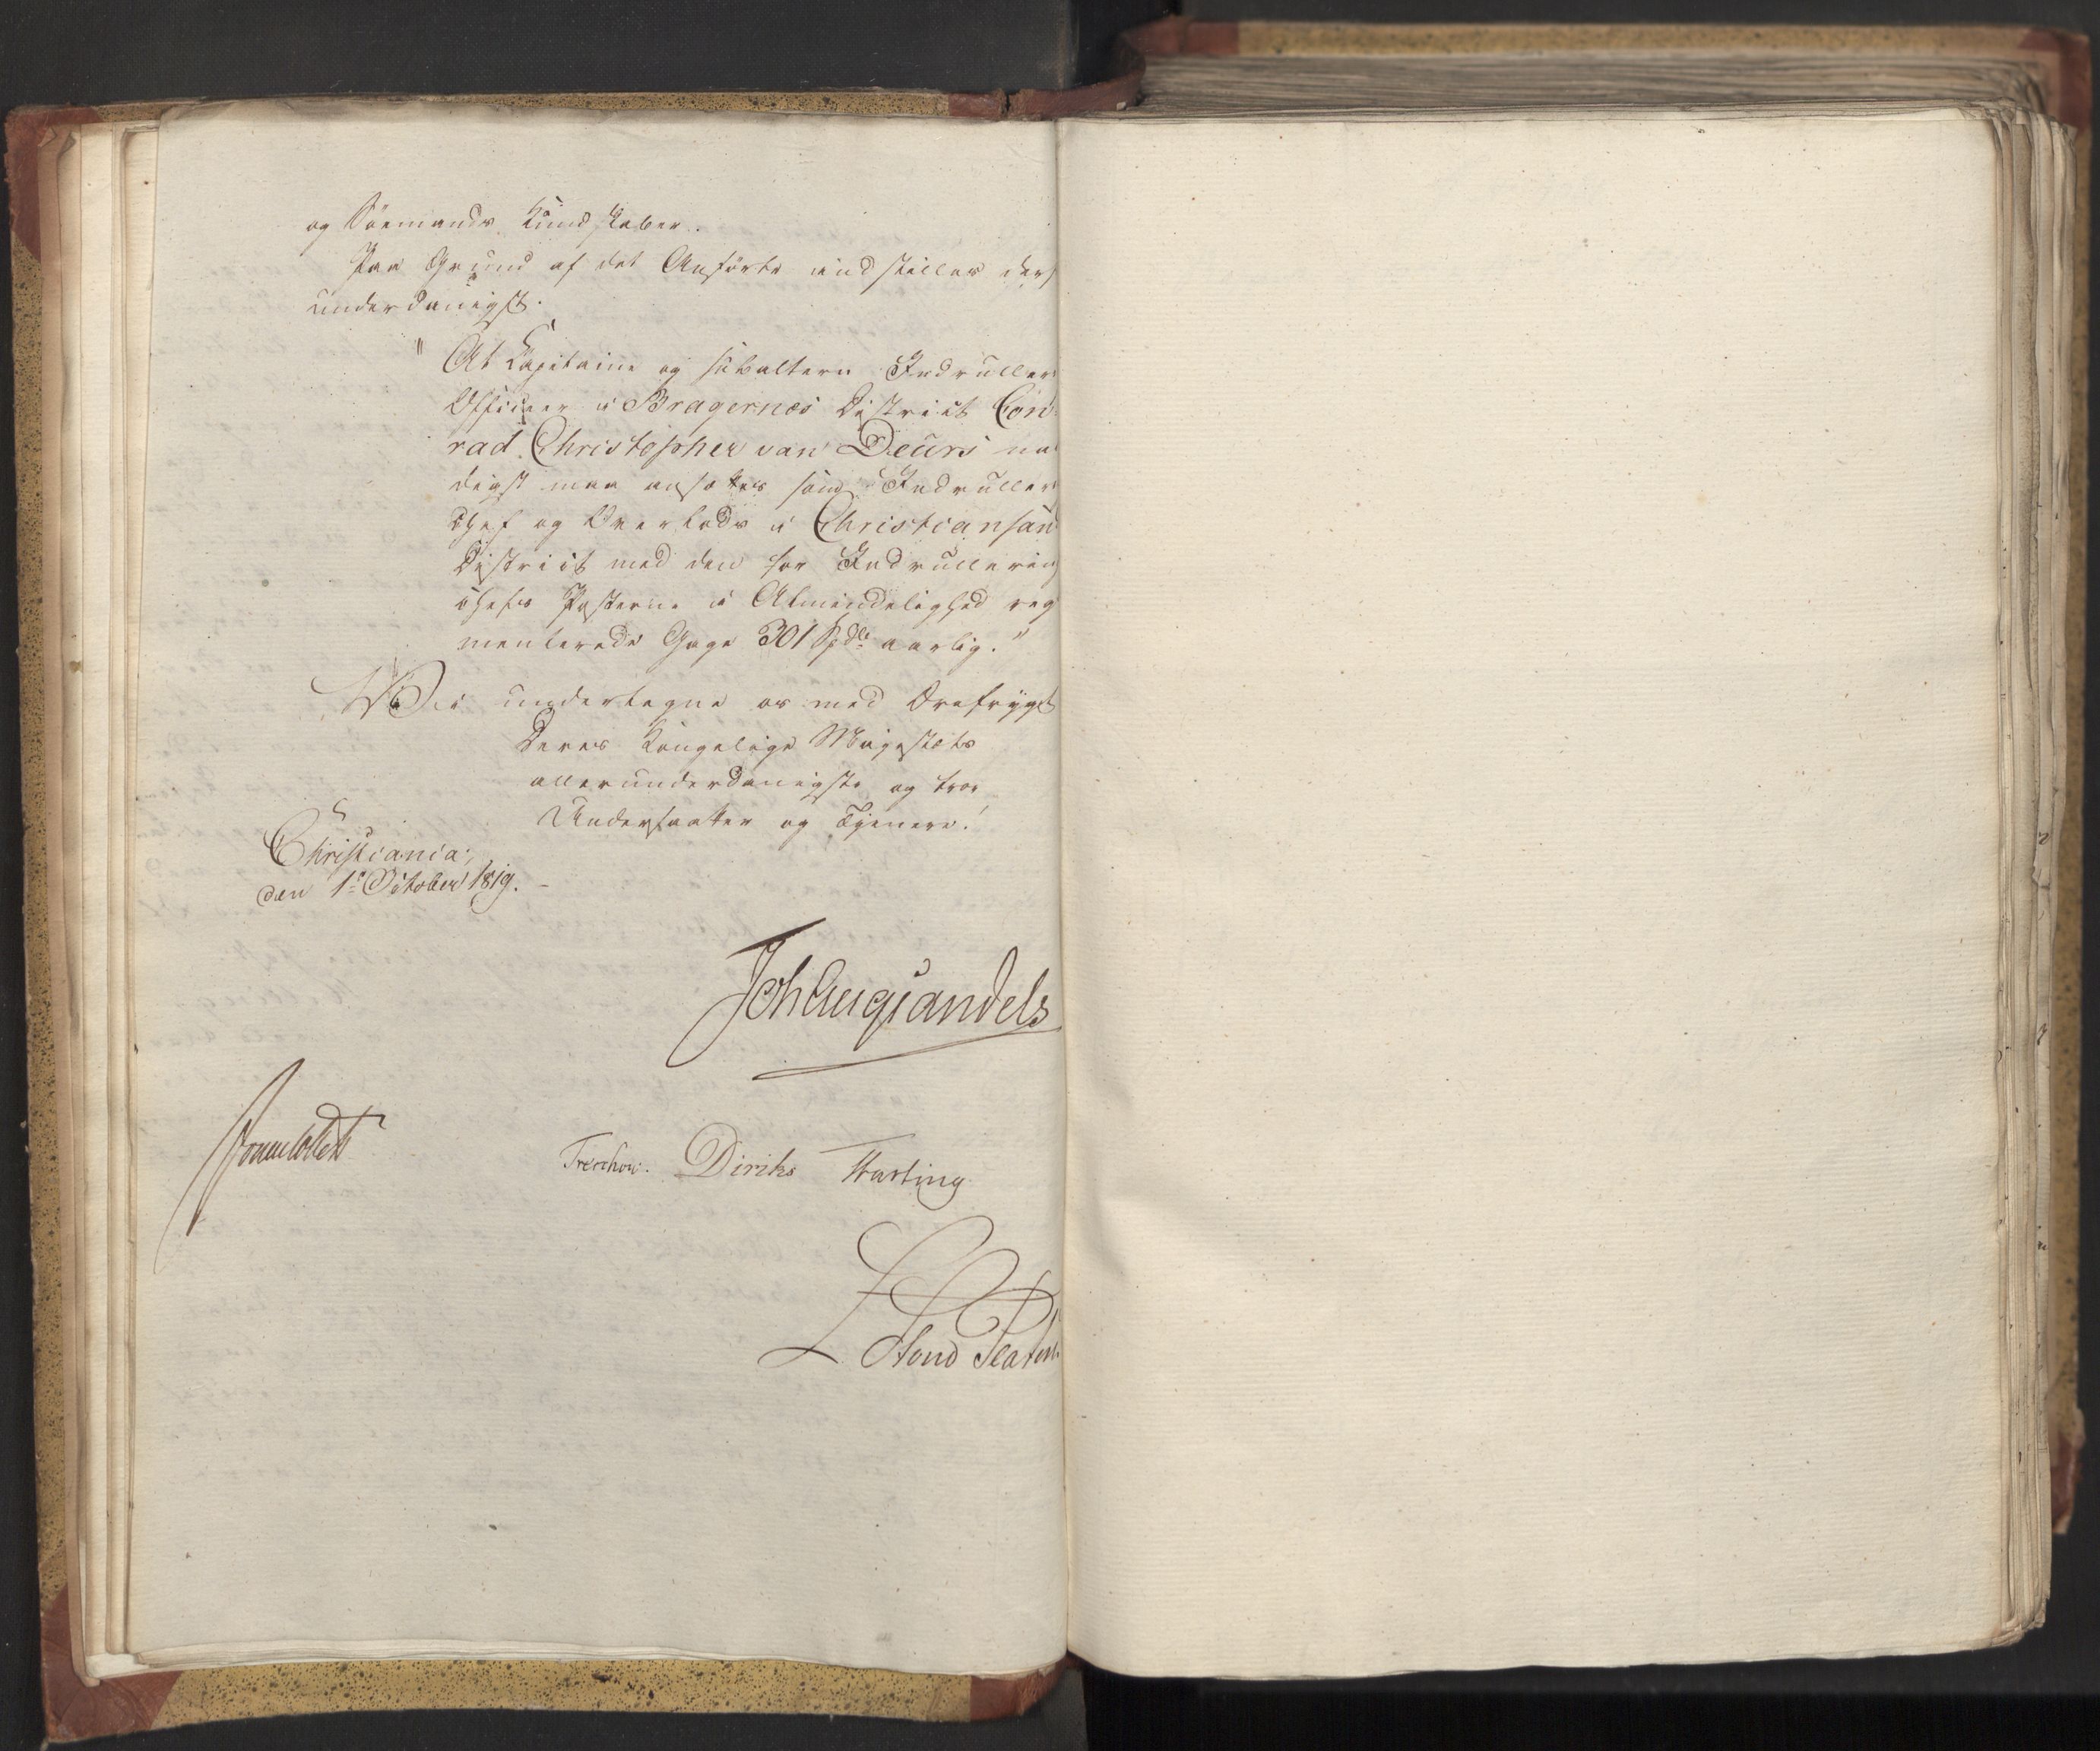 og Söemands Kundskaber.
Paa Grund af det Anförte indstilles der
underdanigst.
"At Capitaine og subaltern Indruller
Officeer i Bragernæs District Con
rad Christopher van Deurs na
digst maa ansættes som Indruller
Chef og Overlods i Christiansan
District med den for Indrullering
chefs Posterne i Almindelighed reg
menterede Gage 301 Spd. aarlig."
Vi undertegne os med Ærefrygt
Deres Kongelige Majestæts
allerunderdanigste og troe
Undersaatter og Tjenere!
Christiania,
den 1ste October 1819. –
Joh Aug Sandels
Jonas Collett
Treschow. Diriks Hasting